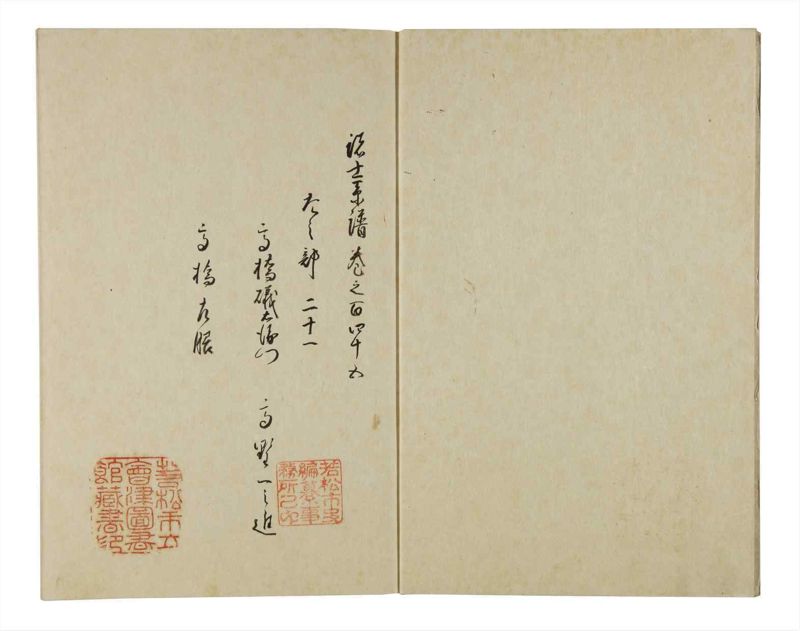 諸士系譜 巻之百四十五
たノ部 二十一
高橋磯右衛門 高野一之進
高橋左膳
若松市史
編纂事
務所之印
若松市立
會津圖書
館藏書印